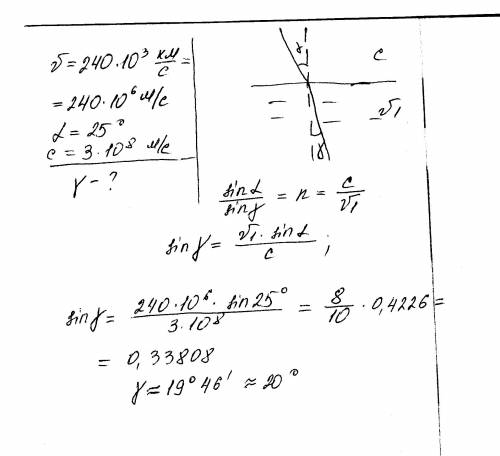 v = 240·10³ км/с =
= 240·10⁶ м/с
α = 25°
c = 3·10⁸ м/с
γ - ?
α c
v₁
γ
sinα/sinγ = n = c/v₁
sinγ = v₁·sinα/c ;
sinγ = 240·10⁶·sin25°/3·10⁸ = 8/10 · 0,4226 =
= 0,33808
γ ≈ 19°46′ ≈ 20°